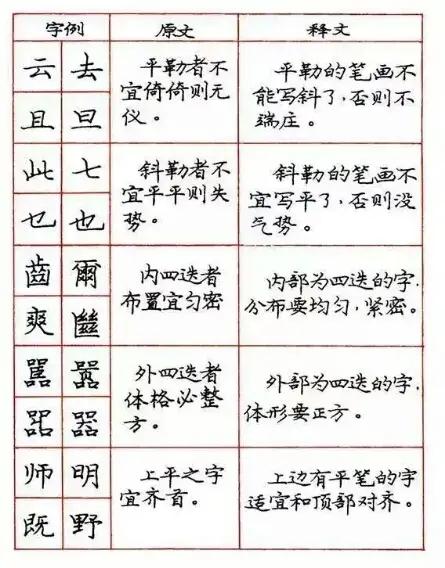 字例 原文 释文
云 去
且 旦
平勒者不
宜倚倚则无
仪。
平勒的笔画不
能写斜了,否则不
端庄。
此 七
乜 也
斜勒者不
宜平平则失
势。
斜勒的笔画不
宜写平了,否则没
气势。
齒 爾
爽
内四迭者
布置宜匀密
内部为四迭的字,
分布要均匀,紧密。
嚣
器
外四迭者
体格必整
方。
外部为四迭的字,
体形要正方。
师 明
既 野
上平之字
宜齐首。
上边有平笔的字
适宜和顶部对齐。